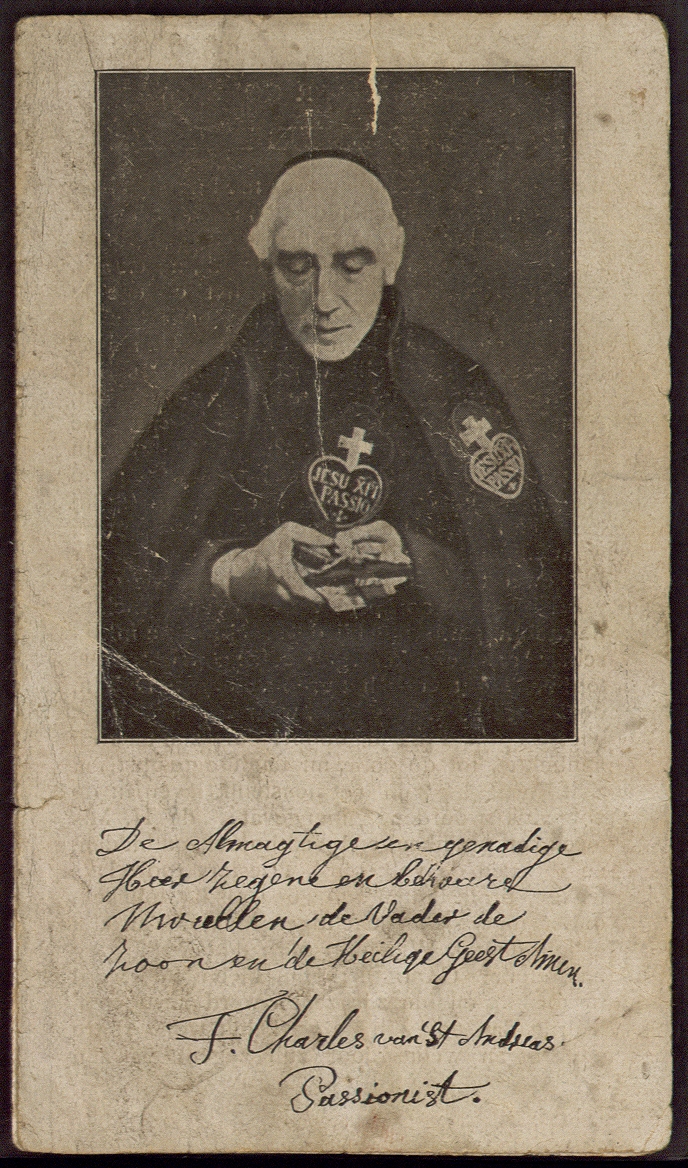 JESU XPI
PASSIO
JESU XPI
PASSIO
De Almagtige en genadige
Heer zegene en beware
U vullen de Vader de
Zoon en de Heilige Geest Amen.
F. Charles van St Andreas.
Passionist.